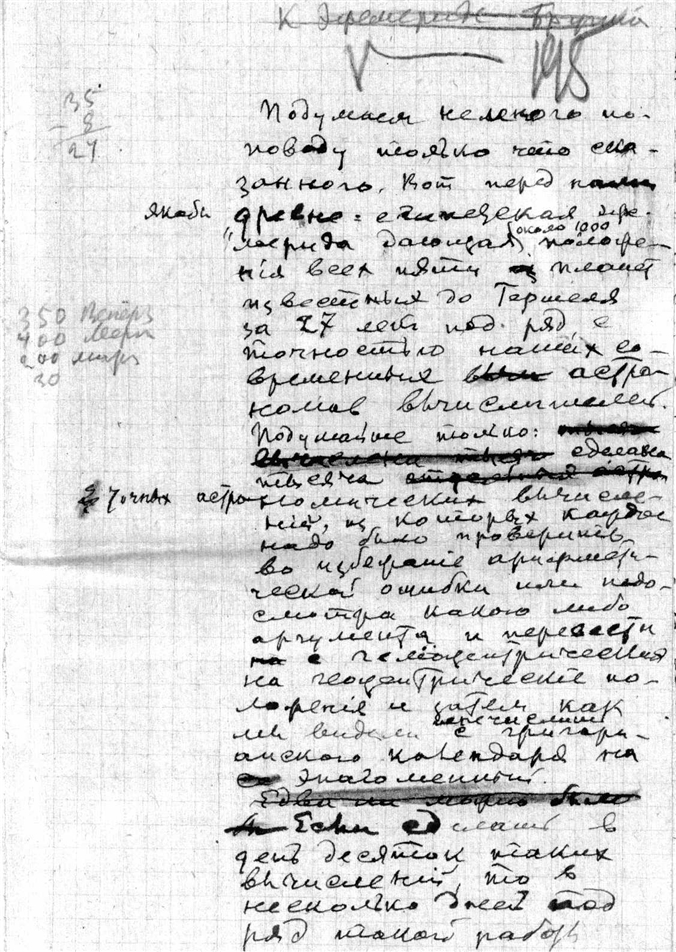 К Эфемериде Бругша
1918
35
- 8
27
Подумаем немного по-
поводу только что ска-
занного. Вот перед нами
якоби древне-египецская эфе-
мерида дающая около 1000 положе-
нія всех пяти планет
известных до Гершеля
за 27 лет под ряд, с
точностью наших со-
350 Венеры
400 Мерк
200 марс
30
временных астро-
номов вычислителей.
Подумайте только:
сделана
тысяча
точных астро-
номических вычисле-
ній, из которых каждое
надо было проверить
во избежаніе арифмети-
ческой ошибки или недо-
смотра какого либо
аргумента и перевести
на с гелиоцентрических
на геоцентрические по-
ложенія и затем как
мы видели перечислить с григори-
анского календаря на
Едва ли можно было
Если сделать в
день десяток таких
вычислений, то в
несколько дней под
ряд такой работы